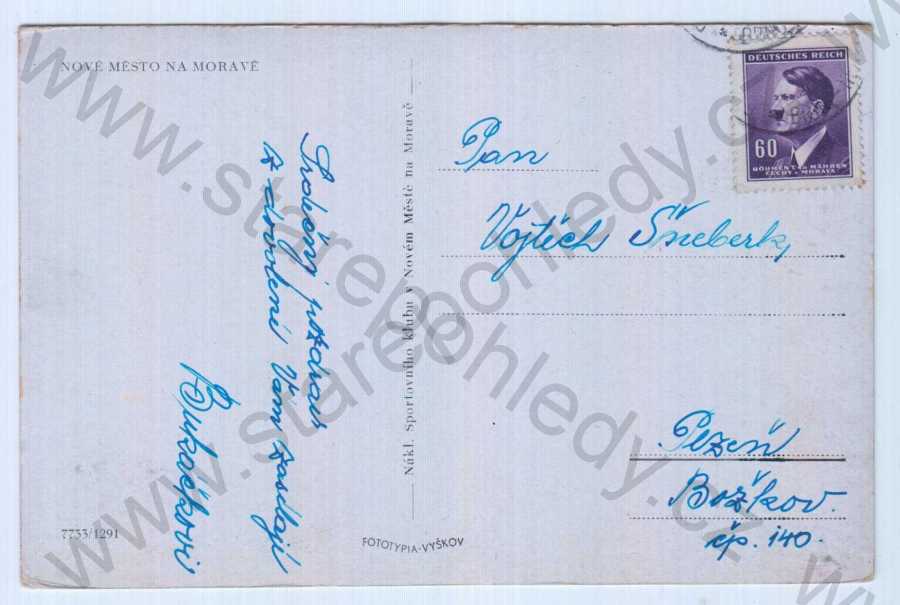 NOVÉ MĚSTO NA MORAVĚ
Srdečný pozdrav
z dovolené Vám zasílají
Bukáčkovi
7733/1291
Nákl. Sportovního klubu v Novém Městě na Moravě
FOTOTYPIA-VYŠKOV
DEUTSCHES REICH
60
BÖHMEN u. MÄHREN
ČECHY a MORAVA
Pan
Vojtěch Šneberk,
Plzeň
Božkov
čp. 140.
www.starepohledy.cz
www.starepohledy.cz